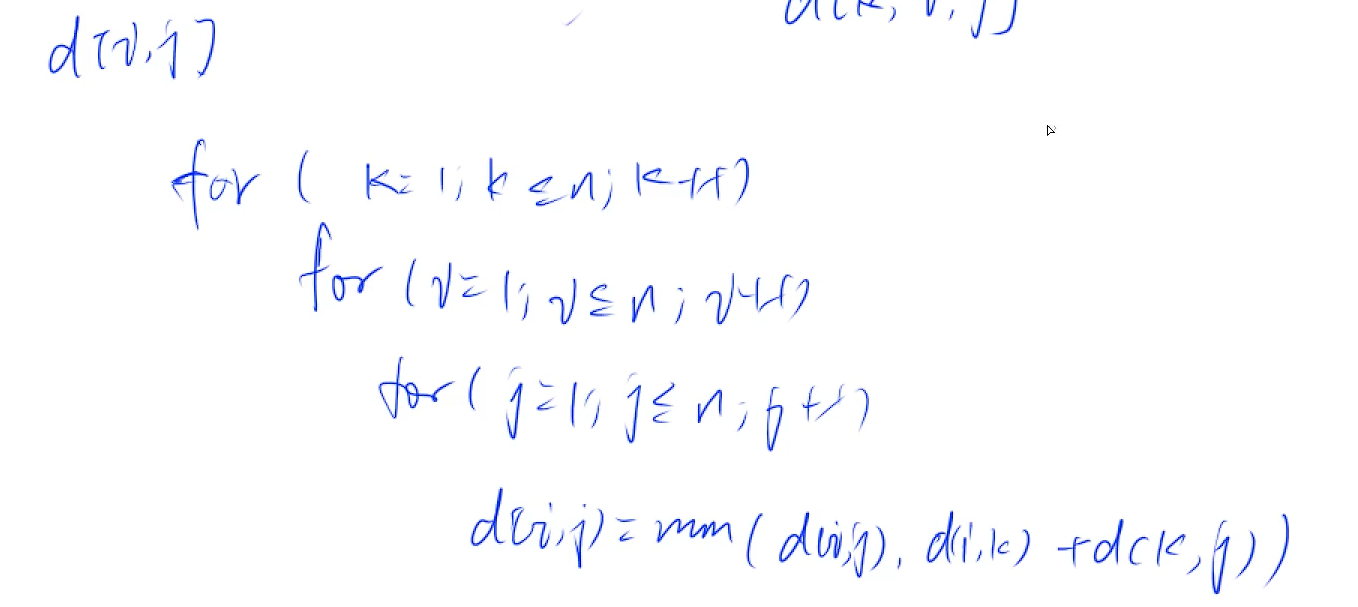 d[k, i, j]
d[i,j]
for ( k=1; k≤n; k++)
for (i=1; i≤n; i++)
for (j=1; j≤n; j++)
d(i,j)=min(d(i,j), d(i,k) +d(k,j))